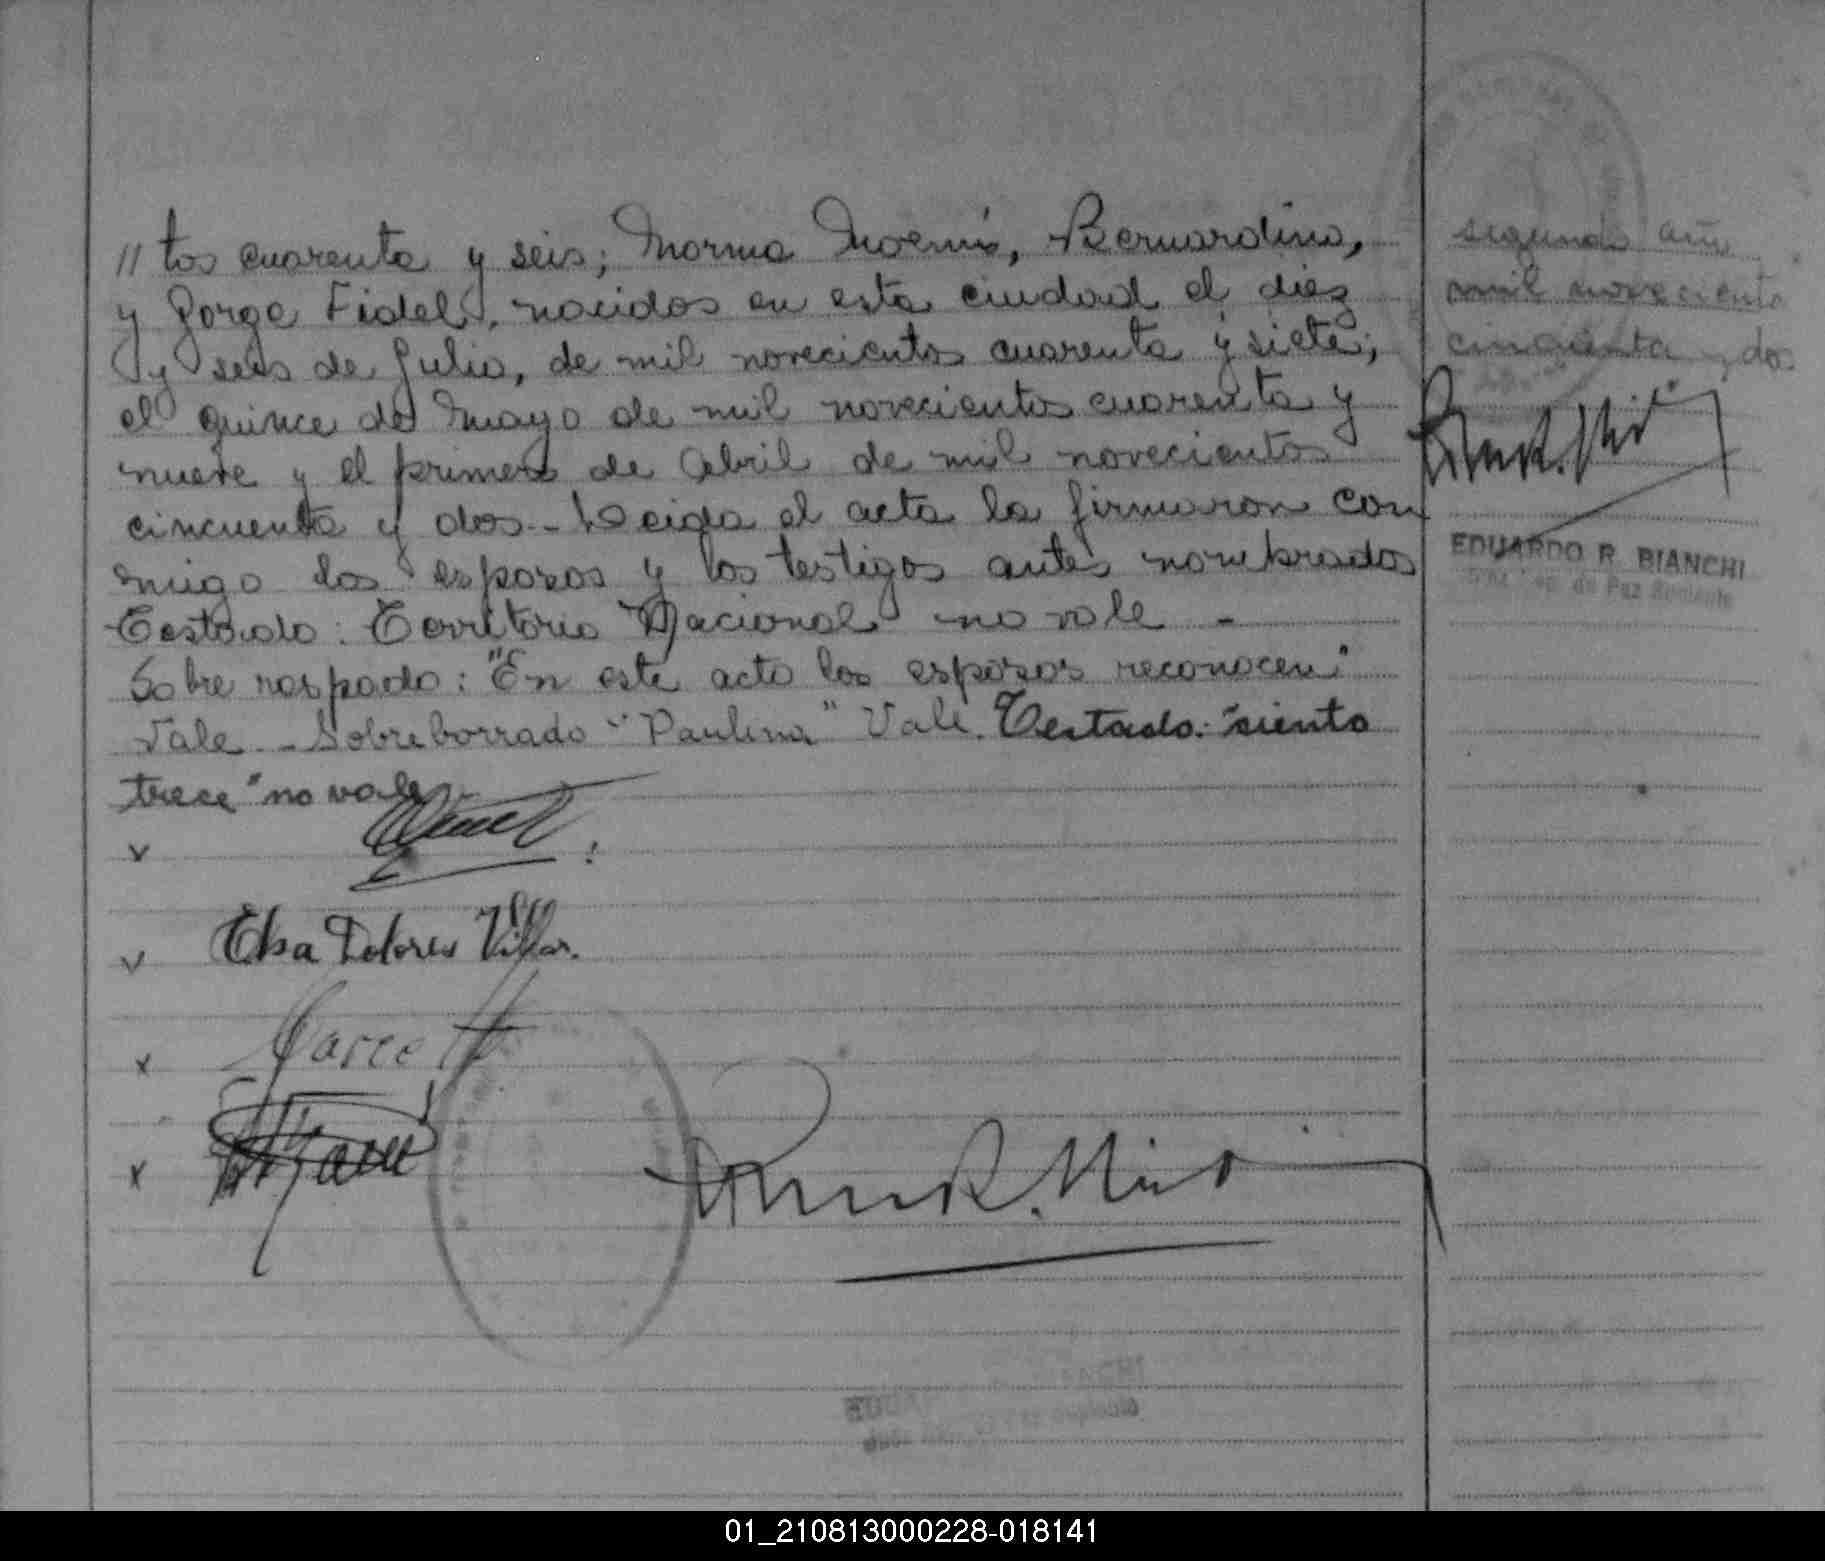 // tos cuarenta y seis; Norma Noemí, Bernardino,
y Jorge Fidel, nacidos en esta ciudad el diez
y seis de Julio, de mil novecientos cuarenta y siete;
el quince de Mayo de mil novecientos cuarenta y
nueve y el primero de Abril de mil novecientos
cincuenta y dos.- Leida el acta la firmaron con
migo los esposos y los testigos antes nombrados
Testado: Territorio Nacional no vale -
Sobre raspado: "En este acto los esposos reconocen"
Vale - Sobreborrado "Paulina" Vale. Testado: "siento
trece" no vale
Elsa Dolores Villar.
segundo
mil novecientos
cincuenta y dos
EDUARDO R. BIANCHI
de Paz
01_210813000228-018141